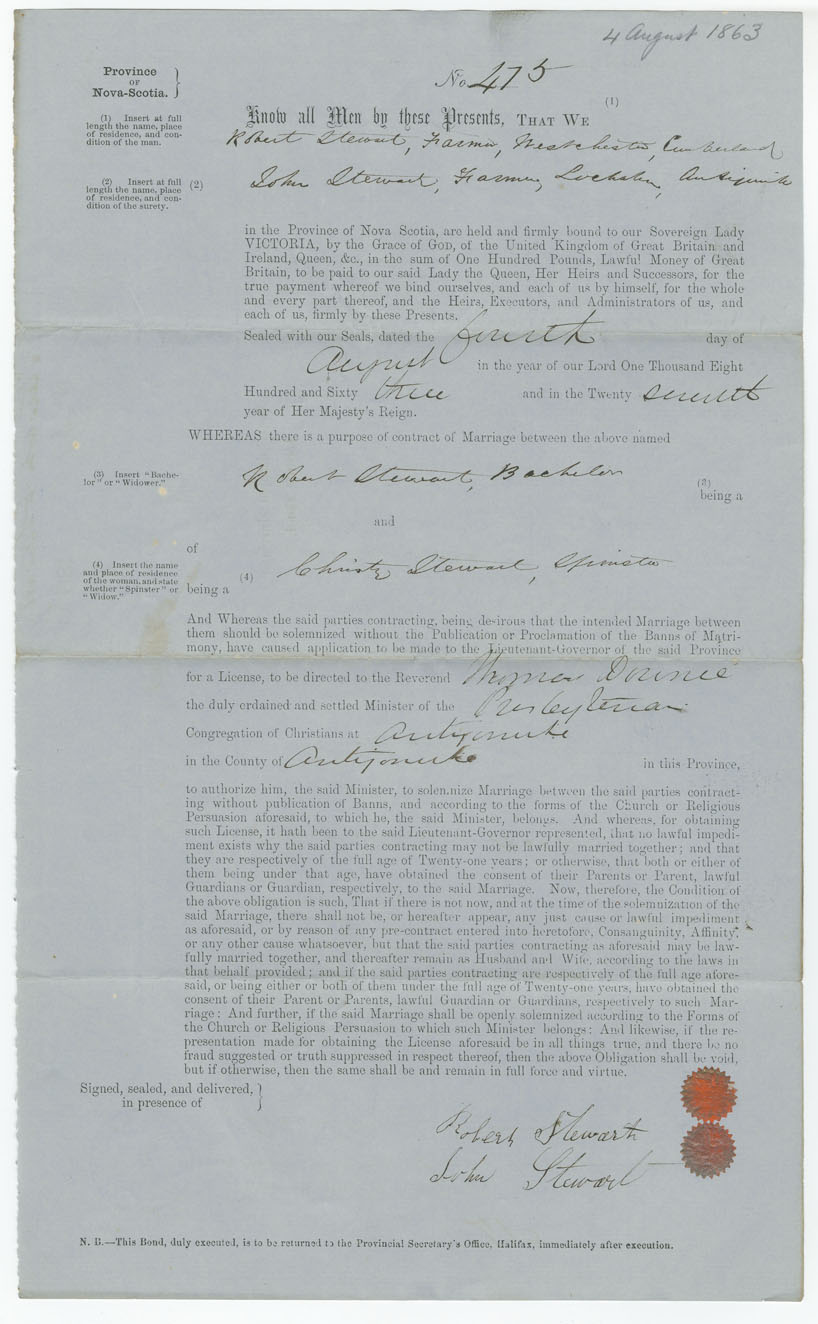 4 August 1863
Province
OF
Nova-Scotia. }
No. 475
(1)
Know all Men by these Presents, THAT WE
(1) Insert at full
length the name, place
of residence, and con-
dition of the man.
Robert Stewart, Farmer, Westchester, Cumberland
(2) Insert at full
length the name, place
of residence, and con-
dition of the surety.
(2) John Stewart, Farmer, Lochaber, Antigonish
in the Province of Nova Scotia, are held and firmly bound to our Sovereign Lady
VICTORIA, by the Grace of GOD, of the United Kingdom of Great Britain and
Ireland, Queen, &c., in the sum of One Hundred Pounds, Lawful Money of Great
Britain, to be paid to our said Lady the Queen, Her Heirs and Successors, for the
true payment whereof we bind ourselves, and each of us by himself, for the whole
and every part thereof, and the Heirs, Executors, and Administrators of us, and
each of us, firmly by these Presents.
Sealed with our Seals, dated the fourth day of
August in the year of our Lord One Thousand Eight
Hundred and Sixty three and in the Twenty seventh
year of Her Majesty's Reign.
WHEREAS there is a purpose of contract of Marriage between the above named
(3) Insert "Bache-
lor" or "Widower."
Robert Stewart, Bachelor
(3)
being a
and
of
(4) Insert the name
and place of residence
of the woman, and state
whether "Spinster" or
"Widow."
(4) Christy Stewart, Spinster
being a
And Whereas the said parties contracting, being desirous that the intended Marriage between
them should be solemnized without the Publication or Proclamation of the Banns of Matri-
mony, have caused application to be made to the Lieutenant-Governor of the said Province
for a License, to be directed to the Reverend Thomas Downie
the duly ordained and settled Minister of the Presbyterian
Congregation of Christians at Antigonishe
in the County of Antigonishe in this Province,
to authorize him, the said Minister, to solemnize Marriage between the said parties contract-
ing without publication of Banns, and according to the forms of the Church or Religious
Persuasion aforesaid, to which he, the said Minister, belongs. And whereas, for obtaining
such License, it hath been to the said Lieutenant-Governor represented, that no lawful impedi-
ment exists why the said parties contracting may not be lawfully married together; and that
they are respectively of the full age of Twenty-one years; or otherwise, that both or either of
them being under that age, have obtained the consent of their Parents or Parent, lawful
Guardians or Guardian, respectively, to the said Marriage. Now, therefore, the Condition of
the above obligation is such, That if there is not now, and at the time of the solemnization of the
said Marriage, there shall not be, or hereafter appear, any just cause or lawful impediment
as aforesaid, or by reason of any pre-contract entered into heretofore, Consanguinity, Affinity,
or any other cause whatsoever, but that the said parties contracting as aforesaid may be law-
fully married together, and thereafter remain as Husband and Wife, according to the laws in
that behalf provided; and if the said parties contracting are respectively of the full age afore-
said, or being either or both of them under the full age of Twenty-one years, have obtained the
consent of their Parent or Parents, lawful Guardian or Guardians, respectively to such Mar-
riage: And further, if the said Marriage shall be openly solemnized according to the Forms of
the Church or Religious Persuasion to which such Minister belongs: And likewise, if the re-
presentation made for obtaining the License aforesaid be in all things true, and there be no
fraud suggested or truth suppressed in respect thereof, then the above Obligation shall be void,
but if otherwise, then the same shall be and remain in full force and virtue.
Signed, sealed, and delivered, }
in presence of }
Robert Stewart
John Stewart
N. B.—This Bond, duly executed, is to be returned to the Provincial Secretary's Office, Halifax, immediately after execution.